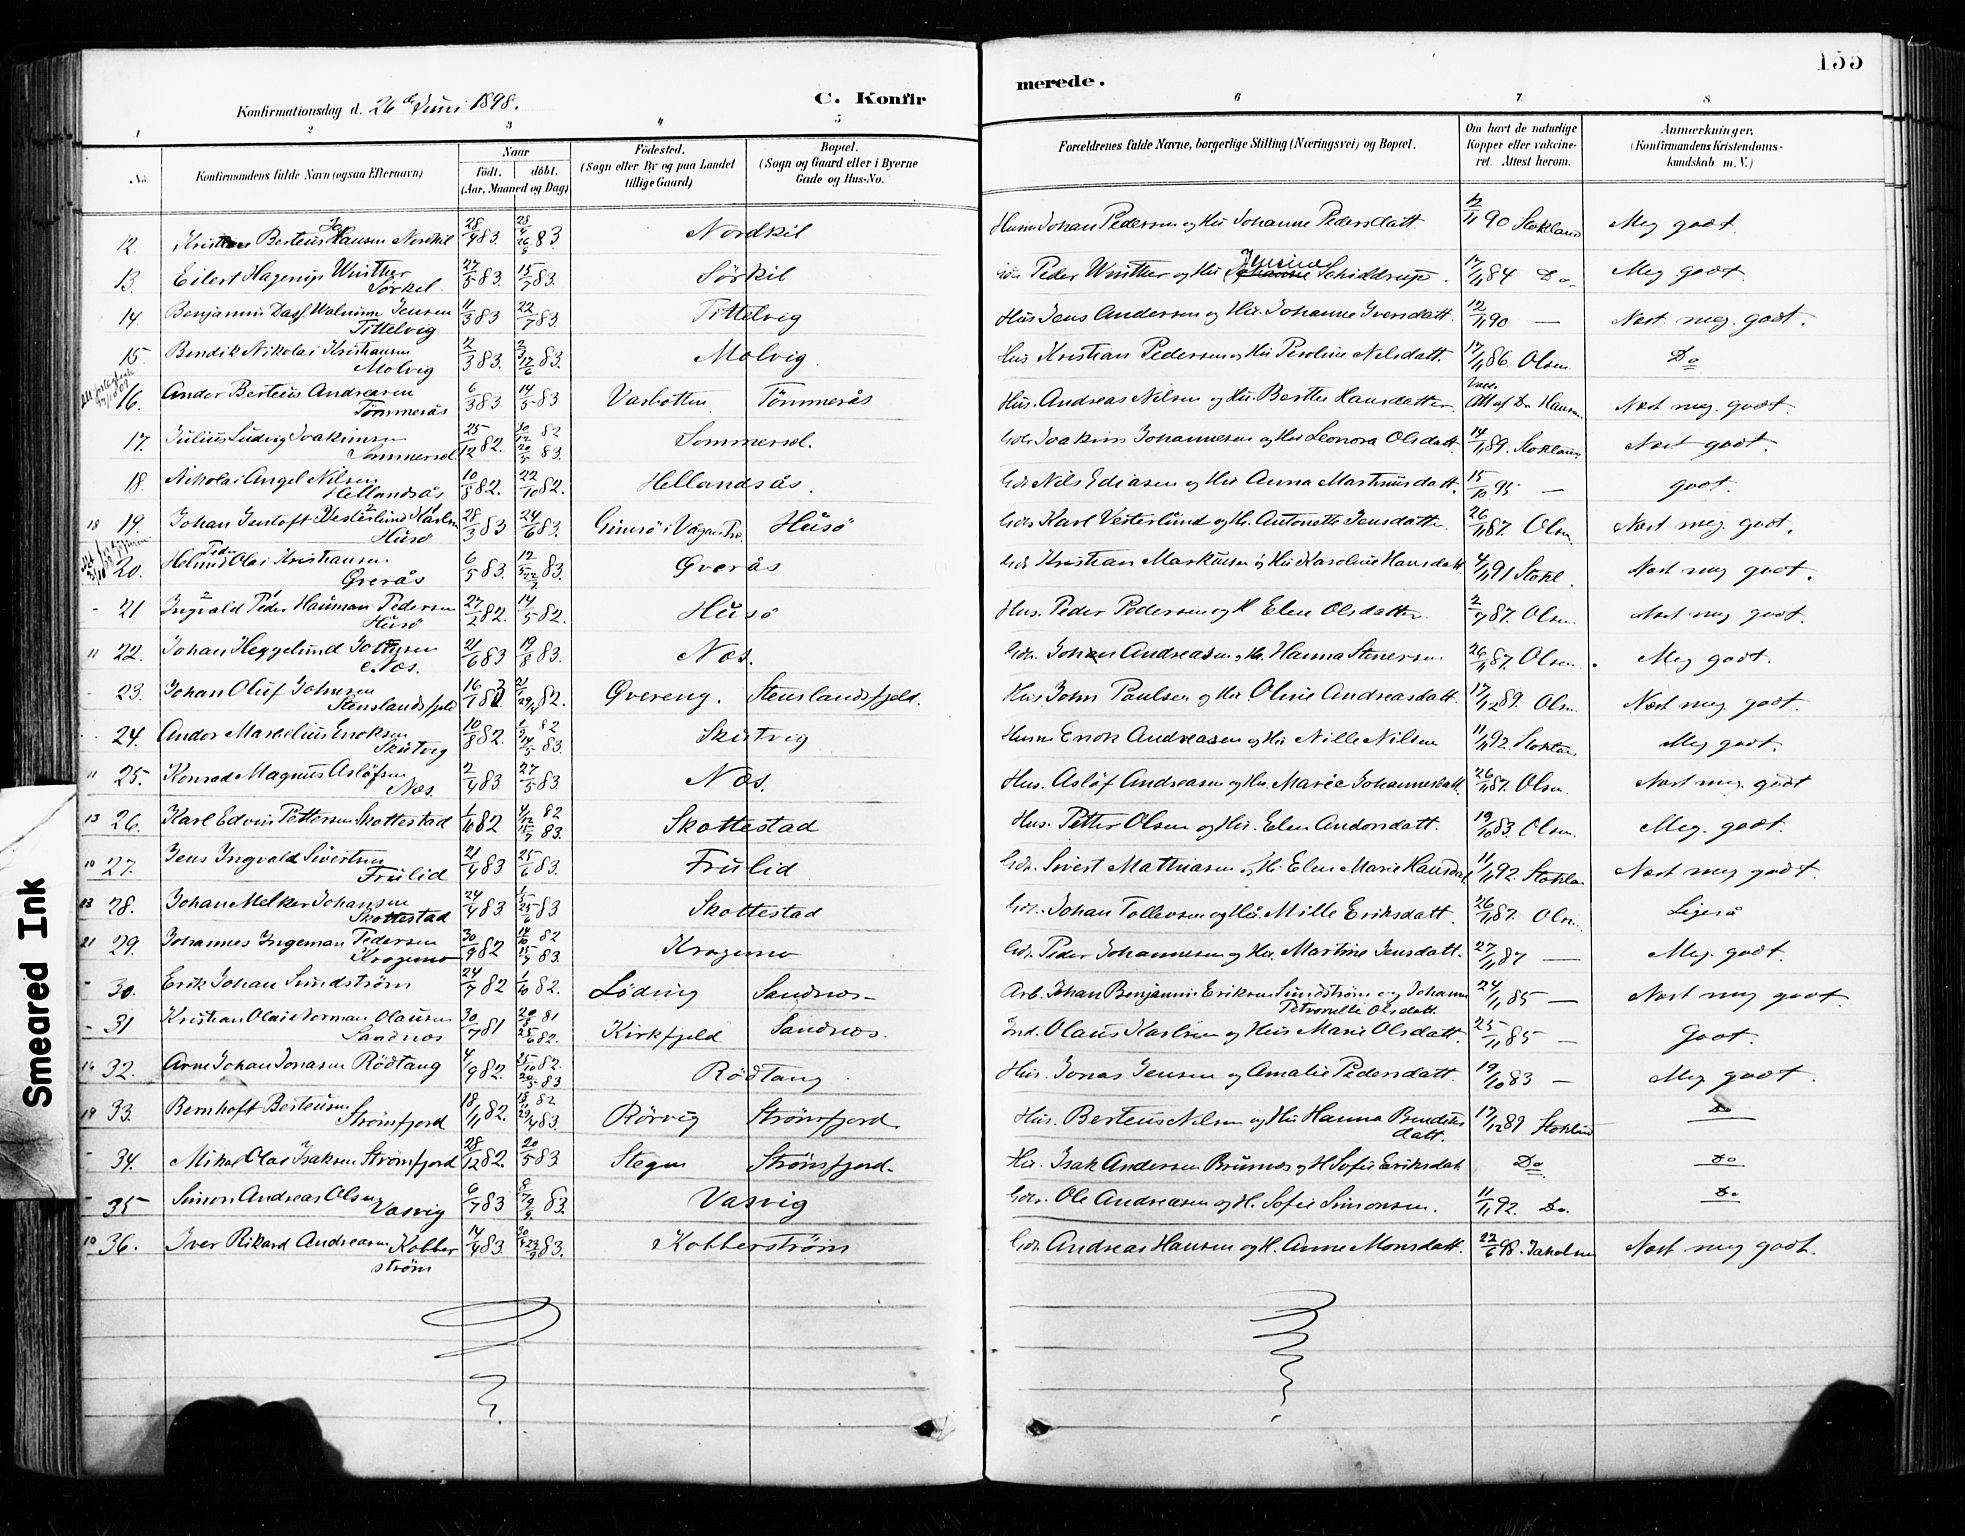 155
Konfirmationsdag d. 26de Juni 1898.
C. Konfir
merede.
1 2 3 4 5 6 7 8
No.
Konfirmandens fulde Navn (ogsaa Efternavn)
Naar
födt. döbt.
(Aar, Maaned og Dag)
Födested.
(Sogn eller By og paa Landet
tillige Gaard)
Bopæl.
(Sogn og Gaard eller i Byerne
Gade og Hus-No.
Forældrenes fulde Navne, borgerlige Stilling (Næringsvei) og Bopæl.
Om havt de naturlige
Kopper eller vaccine-
ret. Attest herom.
Anmærkninger.
(Konfirmandens Kristendoms-
kundskab m. V.)
12. Berteus Hansen Nordkil 28/4 83 Nordkil Johan Pedersen og Hu Johanne Pedersdatt. 90 Stokland Meg godt.
13. Eilert Hagerup Winther Sörkil 27/5 83. 15/7 83. Sörkil Peder Winther og Hu Jensine Schjelderup. 17/11 84 Do Meg godt
14. Benjamin Jensen Tittelvig 11/3 83 22/7 83. Tittelvig Hus Jens Andersen og Hu. Johanne Iversdatt. 12/11 90 — Næst meg. godt.
15. Bendik Nikolai Kristiansen Molvig 2/3 83. 17/6 83. Molvig Hus Kristian Pedersen og Hu Peroline Nilsdatt. 17/11 86 Olsen Do
16. Andor Berteus Andreasen Tömmerås 6/3 83 14/5 83 Vasbotten Tömmerås Hus. Andreas Nilsen og Hu. Berthe Hansdatter Att af Dr Hansen Næst meg. godt.
17. Julius Ludvig Joakimsen Sommersel 25/12 82. 30/12 82 20/5 83. Sommersel. Joakim Johannesen og Hu Leonora Olsdatt. 14/11 89. Stokland Næst godt.
18. Nikolai Angel Nilsen Hellandsås 10/8 82. 22/10 82. Hellandsås. Nils Ediasen og Hu Anna Martinusdatt. 15/10 95 — godt.
18 19. Johan Jentoft Vesterlund Karlsen Husö 28/3 83 24/6 83. Gimsö i Vågan Husö Karl Vesterlund og Hu. Antonette Jensdatter 26/11 87. Olsen. Næst meg. godt.
20. Helmer Peder Olai Kristiansen Qverås 6/5 83. 12/5 22/7 83. Qverås Kristian Markussen og Hu Karoline Hansdatt 4/11 91 Stokl. Næst meg godt.
- 21 Ingvald Peder Hauman Pedersen Husö 27/2 82. 14/5 82. Husö Hus. Peder Pedersen og H. Elen Olsdatter 2/7 87. Olsen. Næst meg godt.
11 22. Johan Heggelund Næs. 21/6 83 19/8 83. Næs. Johan Andreasen og Hu. Hanna Stenersen 26/11 87. Olsen. Meg godt.
- 23. Johan Oluf Johnsen Stenslandsfjeld 16/1 82 21/1 29/4 82. Qvereng. Stenslandsfjeld. Hus John Paulsen og Hu. Oline Andreasdatt. 17/12 89. Olsn. Næst meg godt.
24. Andor Marselius Enoksen Skutvig 10/8 82. 1/9 82 14/5 83. Skutvig Enok Andreasen og Hu Nille Nilsen 11/11 92. Stoklan Meg godt.
11 25. Konrad Magnus Aslöfsen Næs. 2/4 83. 27/5 83. Næs. Hus. Aslöf Andreasen og Hu. Marie Johannesdatt. 26/11 87. Olsen. Næst meg. godt
13 26. Karl Edvin Pettersen Skottestad 1/10 82 4/12 82 15/7 83. Skottestad Hus. Petter Olsen og Hu. Elen Andorsdatt. 19/10 83. Olsen. Meg. godt.
10 27. Jens Ingvald Sivertsen Frulid 21/4 83 25/6 83. Frulid Sivert Mathiasen og Hu Elen Marie Hansdat 11/11 92. Stoklan Næst meg godt.
13 28. Johan Melker Johansen Skottestad 24/4 83 1/5 25/6 83 Skottestad Johan Tollevsen og Hu. Mille Eriksdatt. 26/11 87. Olsn. Ligeså
21 29. Johannes Ingeman Pedersen Kragmo 30/9 82 14/10 82 15/7 83. Kragmo Peder Johannesen og Hu. Martine Jensdatt. 27/11 87 — Meg. godt.
- 30. Erik Johan Sundström 24/7 82 1/10 82. Löding Sandnæs Arb. Johan Benjamin Eriksen Sundström og Johanne Petronelle Olsdatt. 24/11 85 — Næst meg godt
- 31 Kristian Olai Norman Olausen Sandnæs 30/7 81 20/8 81 25/6 82. Kirkfjeld Sandnæs. Ind. Olaus Karlsen og Hus Marie Olsdatt. 25/11 85 — Godt.
14 32. Arne Johan Jonasen Rödtang 4/9 82. 25/10 82. 20/5 83 Rödtang Hus. Jonas Jensen og Amalie Pedersdatt. 19/10 83 — Meg godt.
19 33. Bernhoft Berteusen Strömfjord 18/11 82. 18/11 82 29/4 83. Rörvig Strömfjord Hus. Berteus Nilsen og Hu Hanna Bendiksdatt. 17/12 89 Stoklan Do
- 34. Mikal Olai Isaksen Strömfjord 28/12 82. 20/5 83 Stegen Strömfjord. Hu. Isak Andersen Brunæs og H Sofie Eriksdat Do Do
- 35 Simon Andreas Olsen Vasvig 6/7 83 8/7 9/9 83. Vasvig Ole Andreasen og H. Sofie Simonsen. 11/11 92. Do. Do
10 36. Iver Rikard Andreasen Kobberström 14/4 83. 83. Kobberström Andreas Hansen og H. Anne Monsdatt. 22/6 98. Jakobsen Næst meg godt.
Smeared Ink